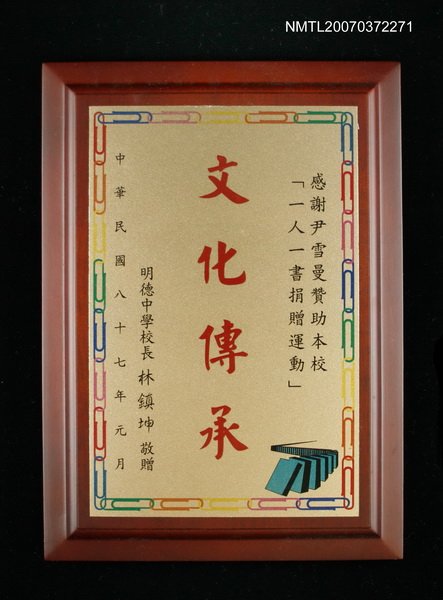 NMTL20070372271
感謝尹雪曼贊助本校
「一人一書捐贈運動」
文化傳承
明德中學校長 林鎮坤 敬贈
中華民國八十七年元月